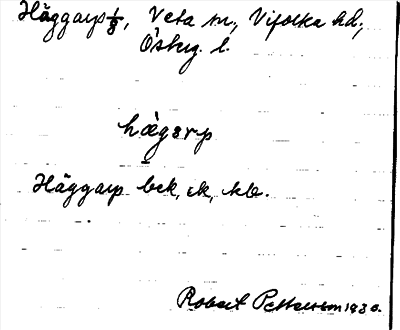 Häggarp 1/8, Veta sn, Vifolka hd,
Österg. l.
hägarp
Häggarp bck, ck, kb.
Robert Pettersson 1930.